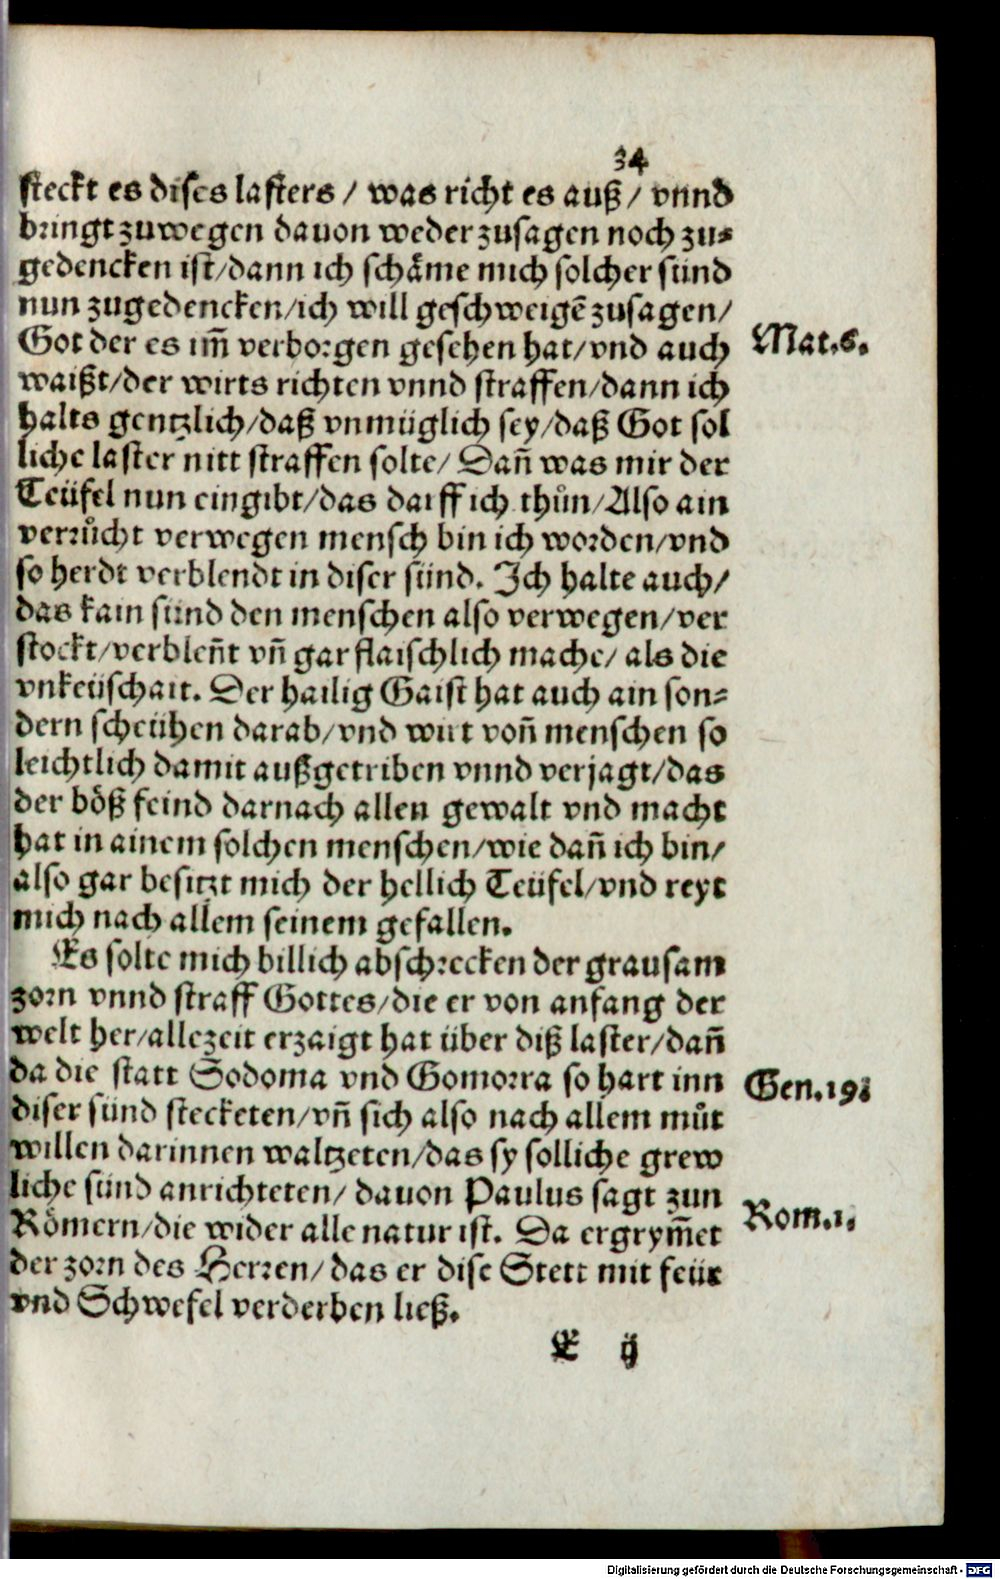 34
steckt es dises lasters / was richt es auß / vnnd
bringt zuwegen dauon weder zusagen noch zu⸗
gedencken ist/dann ich schäme mich solcher sünd
nun zugedencken/ich will geschweigē zusagen/
Got der es im̃ verborgen gesehen hat/vnd auch
Mat.6.
waißt/der wirts richten vnnd straffen/dann ich
halts gentzlich/daß vnmüglich sey/daß Got sol
liche laster nitt straffen solte/ Dañ was mir der
Teüfel nun eingibt/das darff ich thůn/Also ain
verrůcht verwegen mensch bin ich worden/vnd
so herdt verblendt in diser sünd. Ich halte auch/
das kain sünd den menschen also verwegen/ver
stockt/verbleñt vñ gar flaischlich mache/ als die
vnkeüschait. Der hailig Gaist hat auch ain son⸗
dern scheühen darab/vnd wirt voñ menschen so
leichtlich damit außgetriben vnnd verjagt/das
der böß feind darnach allen gewalt vnd macht
hat in ainem solchen menschen/wie dañ ich bin/
also gar besitzt mich der hellich Teüfel/vnd reyt
mich nach allem seinem gefallen.
Es solte mich billich abschrecken der grausam
zorn vnnd straff Gottes/die er von anfang der
welt her/allezeit erzaigt hat über diß laster/dañ
da die statt Sodoma vnd Gomorra so hart inn
Gen.19.
diser sünd stecketen/vñ sich also nach allem můt
willen darinnen waltzeten/das sy solliche grew
liche sünd anrichteten/ dauon Paulus sagt zun
Rom.1.
Römern/die wider alle natur ist. Da ergrym̃et
der zorn des Herren/das er dise Stett mit feür
vnd Schwefel verderben ließ.
E ij
Digitalisierung gefördert durch die Deutsche Forschungsgemeinschaft - DFG